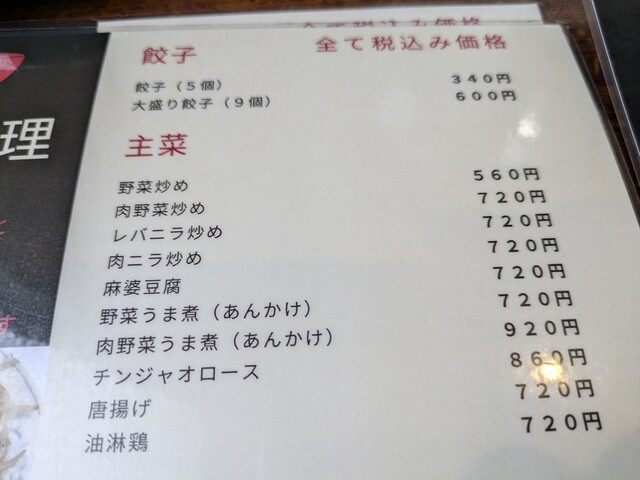 全て税込み価格
餃子 全て税込み価格
餃子（５個） ３４０円
大盛り餃子（９個） ６００円
主菜
野菜炒め ５６０円
肉野菜炒め ７２０円
レバニラ炒め ７２０円
肉ニラ炒め ７２０円
麻婆豆腐 ７２０円
野菜うま煮（あんかけ） ７２０円
肉野菜うま煮（あんかけ） ９２０円
チンジャオロース ８６０円
唐揚げ ７２０円
油淋鶏 ７２０円
理
す